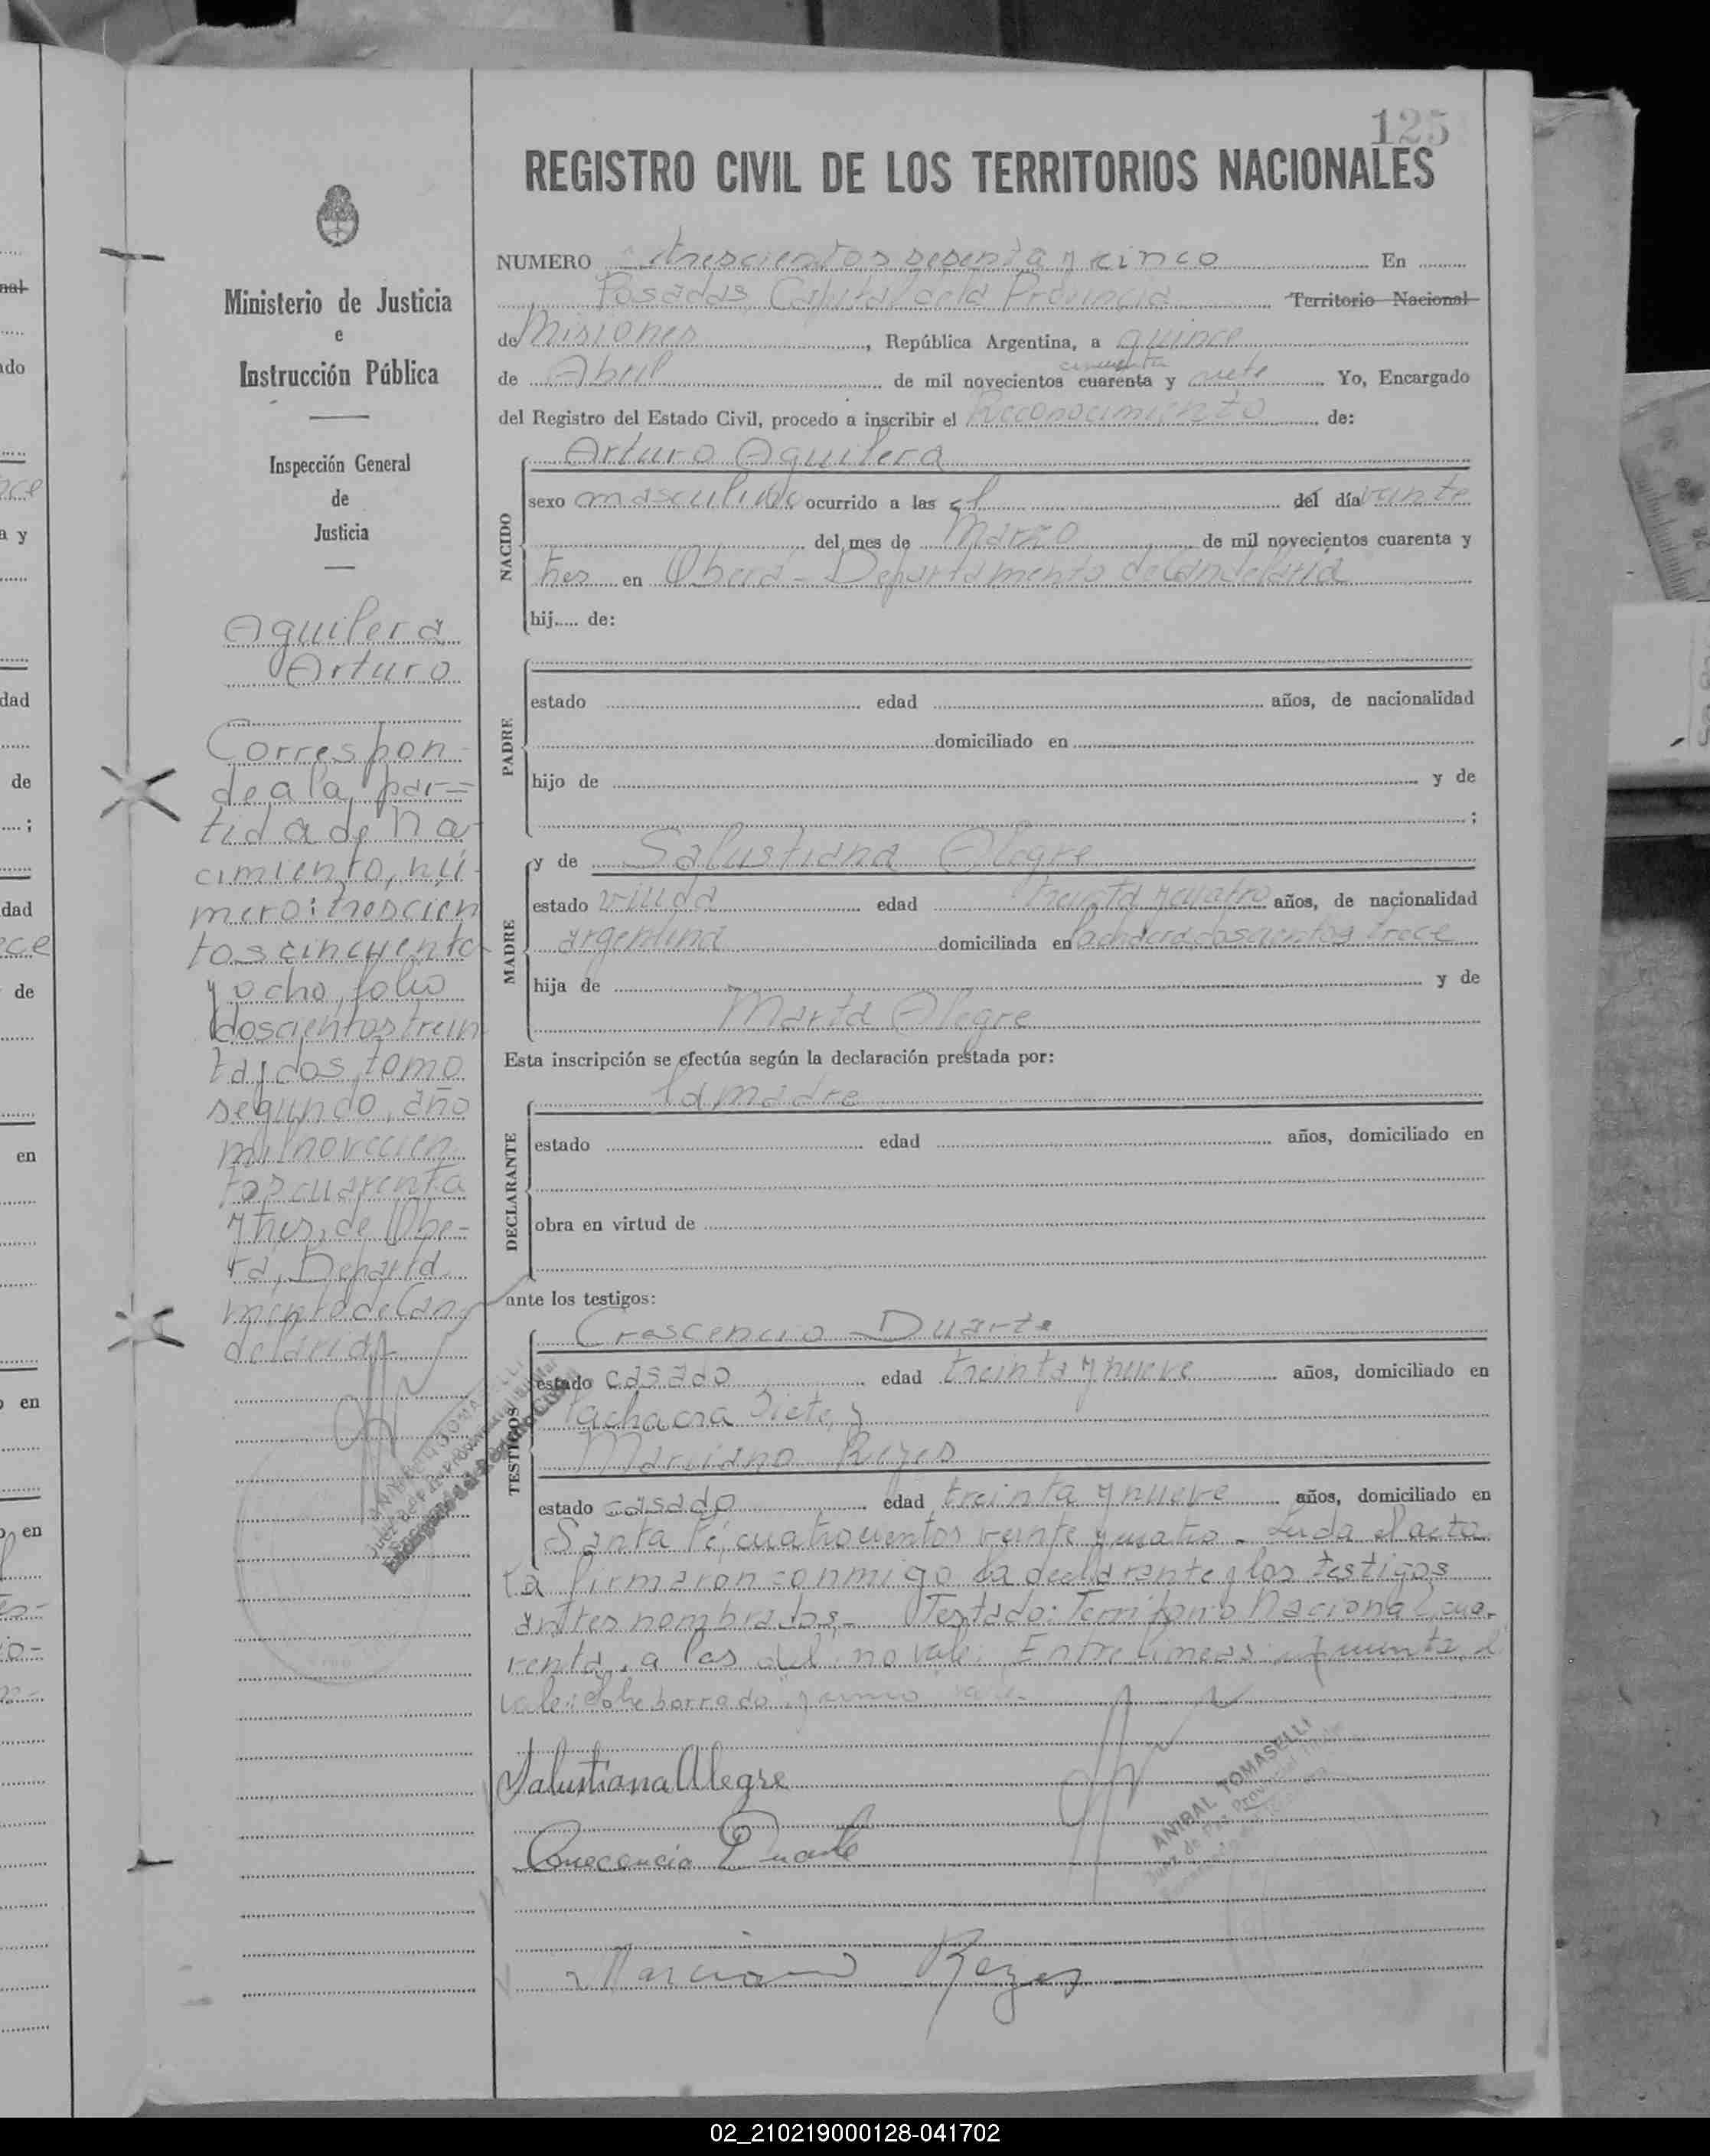 125
REGISTRO CIVIL DE LOS TERRITORIOS NACIONALES
Ministerio de Justicia
e
Instrucción Pública
Inspección General
de
Justicia
Aguilera
Arturo
Correspon-
de a la par=
tida de Na-
cimiento, nú-
mero: trescien
tos cincuenta
y ocho, folio
doscientos trein
ta y dos, tomo
segundo, año
mil novecien
tos cuarenta
y tres, de Obe-
rá, Departa
mento de Can-
delaria
NUMERO trescientos sesenta y cinco En
Posadas, Capital de la Provincia Territorio Nacional
de Misiones, República Argentina, a quince
de Abril de mil novecientos cuarenta cincuenta y siete Yo, Encargado
del Registro del Estado Civil, procedo a inscribir el Reconocimiento de:
Arturo Aguilera
NACIDO
sexo masculino ocurrido a las el del día veinte
del mes de Marzo de mil novecientos cuarenta y
tres en Oberá - Departamento de Candelaria
hij..... de:
PADRE
estado edad años, de nacionalidad
domiciliado en
hijo de y de
;
MADRE
y de Salustiana Alegre
estado viuda edad treinta y cuatro años, de nacionalidad
argentina domiciliada en la chacra doscientos trece
hija de y de
Marta Alegre
Esta inscripción se efectúa según la declaración prestada por:
la madre
DECLARANTE
estado edad años, domiciliado en
obra en virtud de
ante los testigos:
TESTIGOS
Crescencio Duarte
estado casado edad treinta y nueve años, domiciliado en
la chacra siete, y
Marciano Reyes
estado casado edad treinta y nueve años, domiciliado en
Santa Fé, cuatrocientos veinte y cuatro - Leida el acta
la firmaron conmigo la declarante y los testigos
antes nombrados - Testado: Territorio Nacional, cua-
renta, a las del: no vale. Entre líneas:
vale: Sobre borrado
Salustiana Alegre
Crecencio Duarte
Marciano Reyes
ANIBAL TOMASELLI
Juez de Paz Provincial Titular
Encargado del Registro Civil
ANIBAL TOMASELLI
Juez de Paz Provincial Titular
02_210219000128-041702